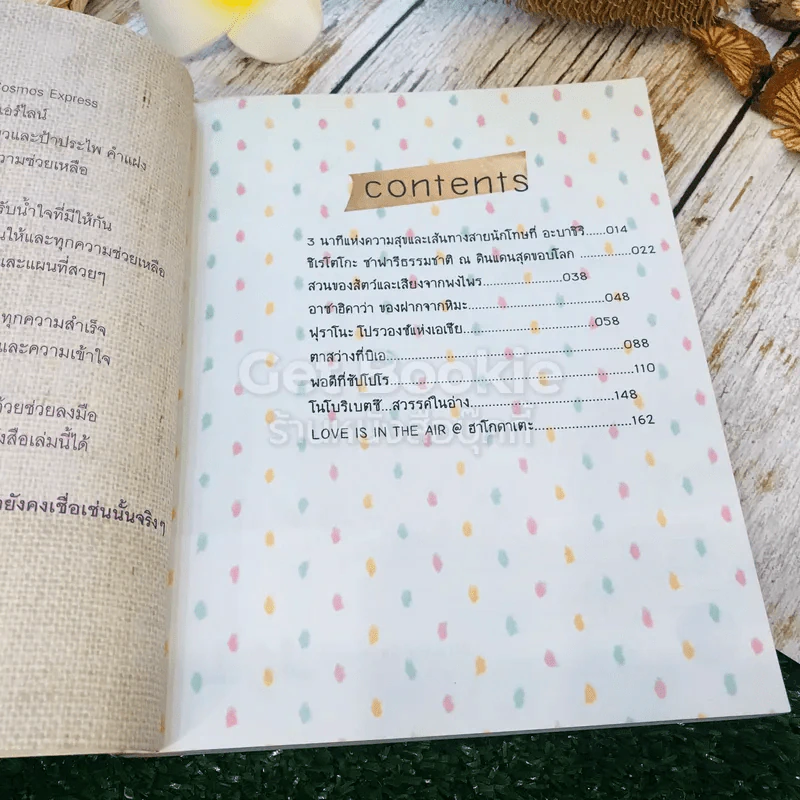 Cosmos Express
แอร์ไลน์
และป้าประไพ คำแฝง
ความช่วยเหลือ
รับน้ำใจที่มีให้กัน
ให้และทุกความช่วยเหลือ
และแผนที่สวยๆ
ทุกความสำเร็จ
และความเข้าใจ
ด้วยช่วยลงมือ
สือเล่มนี้ได้
ยังคงเชื่อเช่นนั้นจริงๆ
contents
3 นาทีแห่งความสุขและเส้นทางสายนักโทษที่ อะบาชิริ......014
ชิเรโตโกะ ซาฟารีธรรมชาติ ณ ดินแดนสุดขอบโลก ............022
สวนของสัตว์และเสียงจากพงไพร....................038
อาซาฮิคาว่า ของฝากจากหิมะ..................................048
ฟุราโนะ โปรวองซ์แห่งเอเชีย................................058
ตาสว่างที่บิเอ............................................................088
พอดีที่ซัปโปโร..............................................................110
โนโบริเบตซึ...สวรรค์ในอ่าง....................................148
LOVE IS IN THE AIR @ ฮาโกดาเตะ.........................162
Get Bookie
ร้านหนังสือบุ๊กกี้